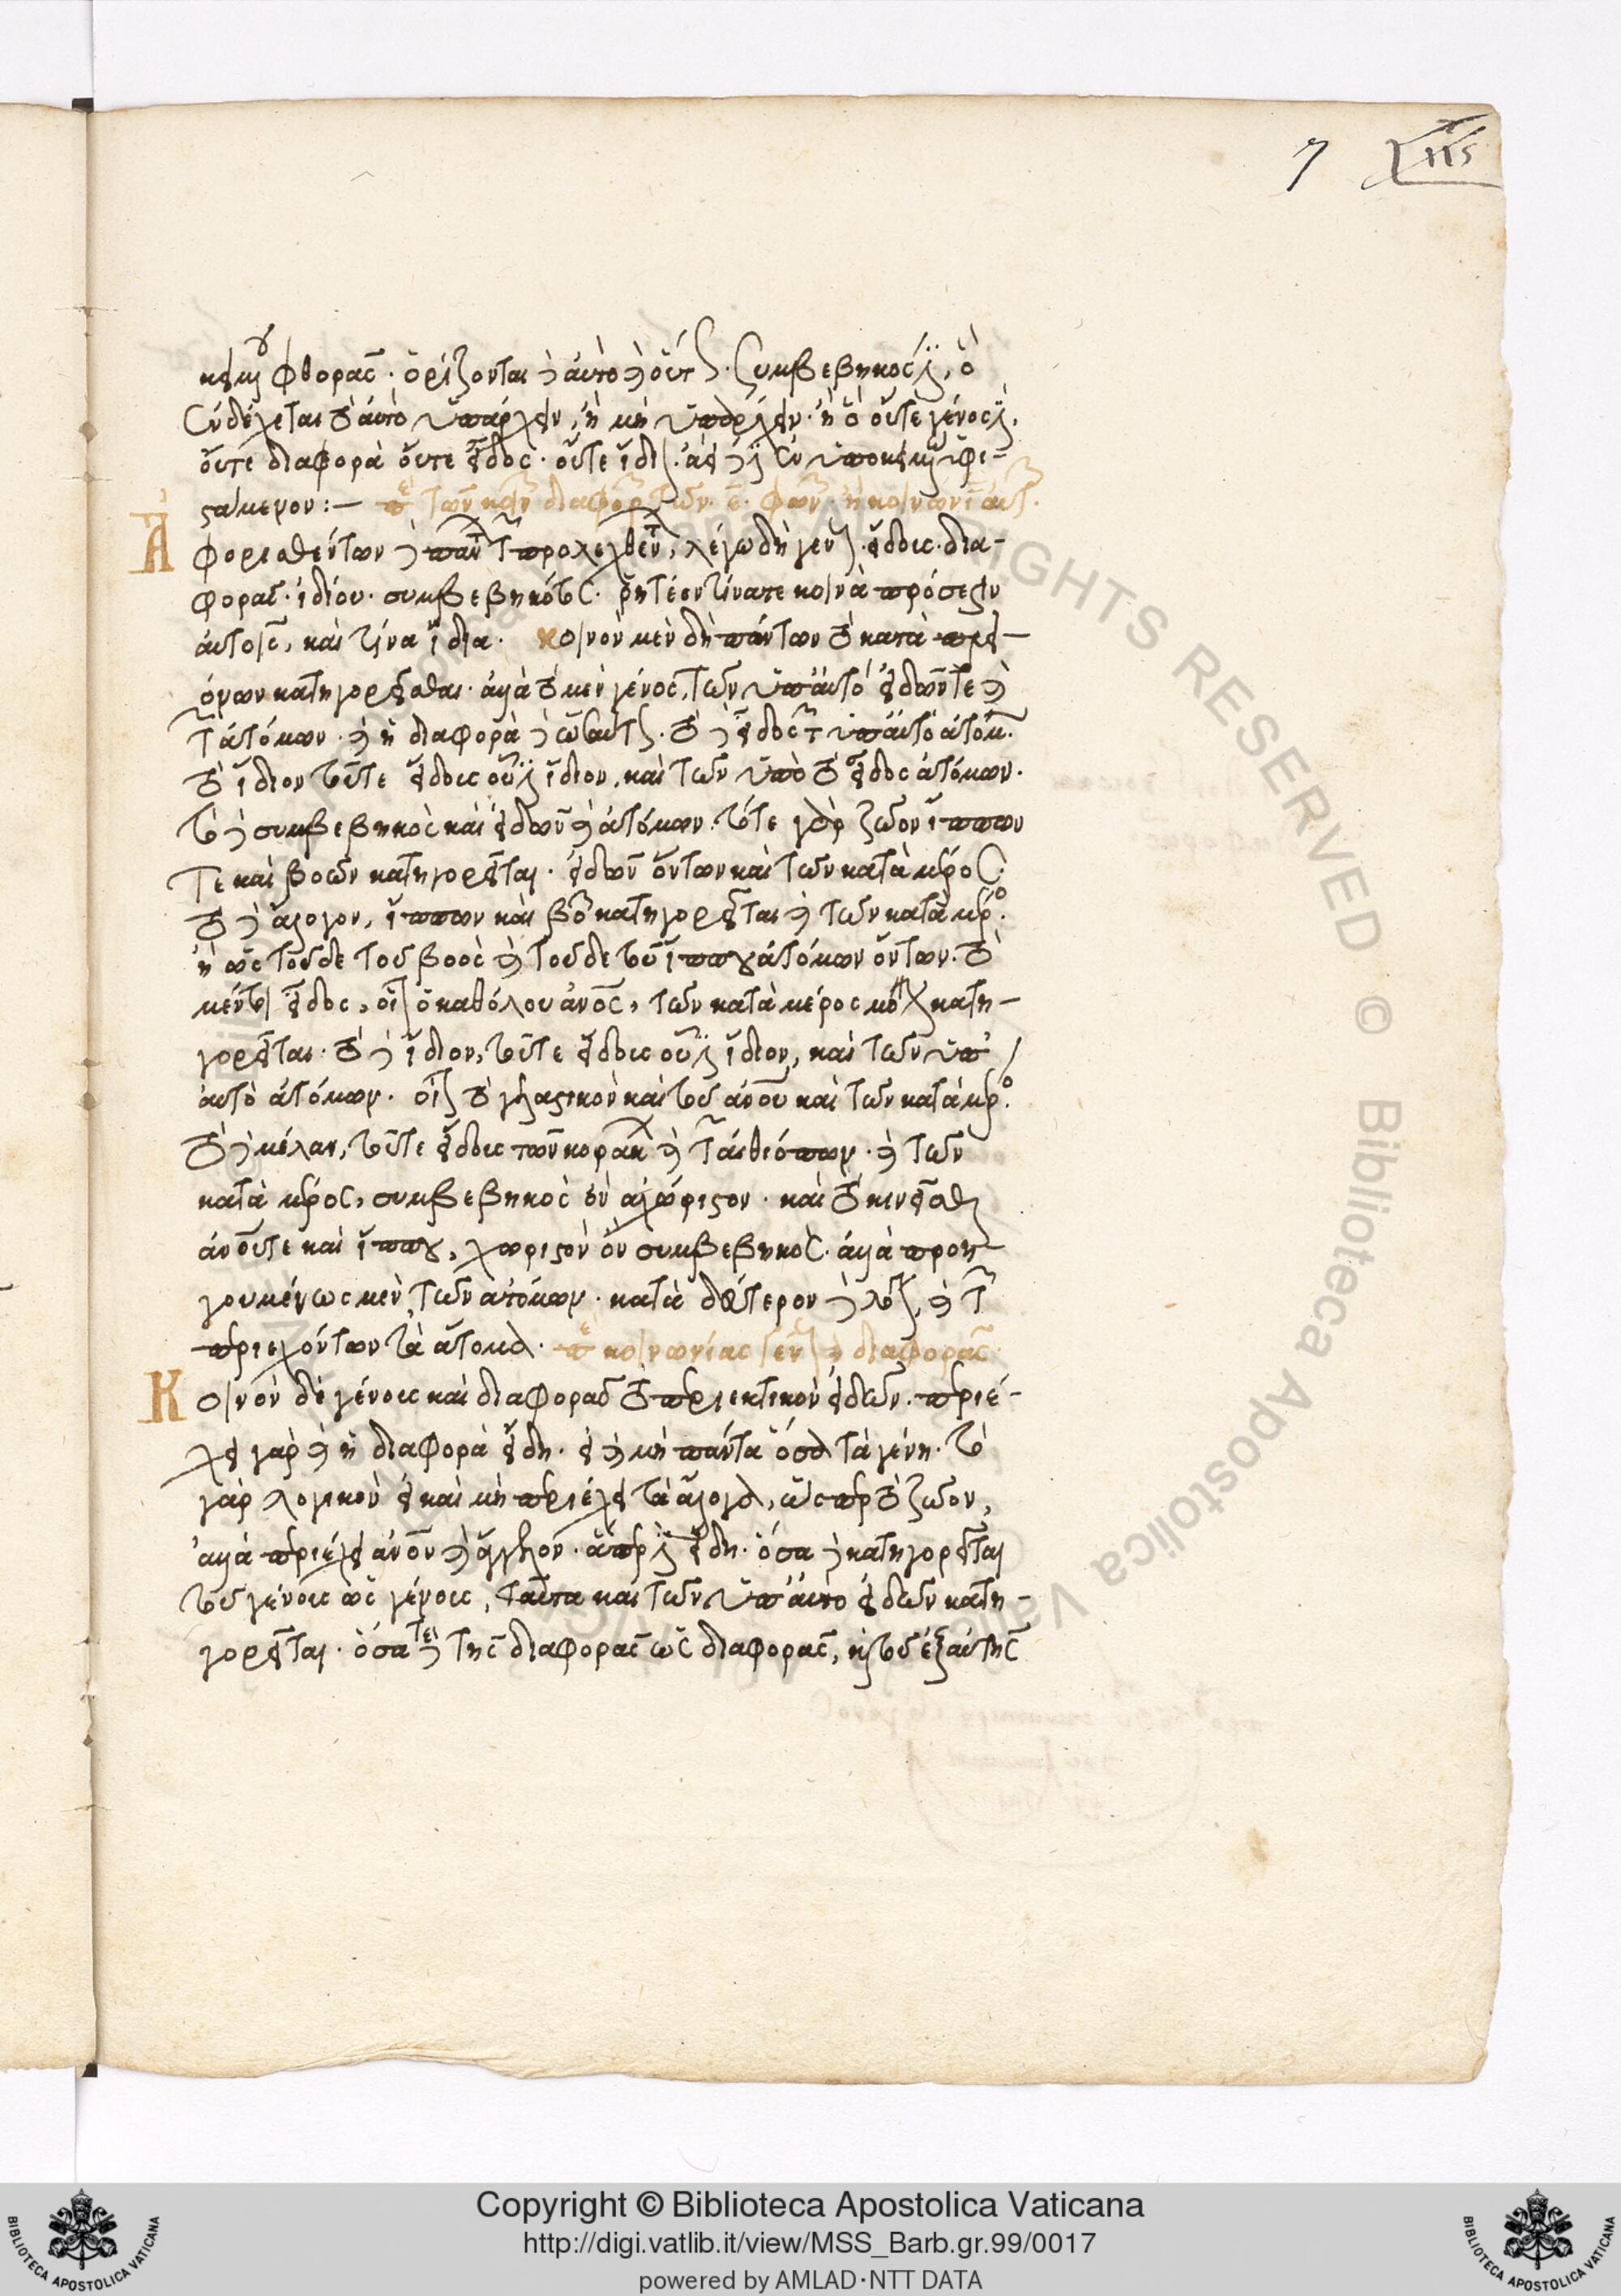 7
κειμένου φθορᾶς. ὁρίζονται δὲ αὐτὸ καὶ οὕτως. συμβεβηκός ἐστιν, ὃ
ἐνδέχεται τῷ αὐτῷ ὑπάρχειν, ἢ μὴ ὑπάρχειν. ἢ ὃ οὔτε γένος ἐστὶν,
οὔτε διαφορὰ οὔτε εἶδος. οὔτε ἴδιον. ἀεὶ δέ ἐστιν ἐν ὑποκειμένῳ ὑφι-
στάμενον:—
Ἀφορισθέντων δὲ πάντων τῶν προλεχθέντων, λέγω δὴ γένους. εἴδους. δια-
φορᾶς. ἰδίου. συμβεβηκότος. ῥητέον τίνα τε κοινὰ πρόσεστιν
αὐτοῖς, καὶ τίνα ἴδια. κοινὸν μὲν δὴ πάντων τὸ κατὰ πλει-
όνων κατηγορεῖσθαι. ἀλλὰ τὸ μὲν γένος, τῶν ὑπ' αὐτὸ εἰδῶν τε καὶ
τῶν ἀτόμων. καὶ ἡ διαφορὰ δὲ ὡσαύτως. τὸ δὲ εἶδος τῶν ὑπ' αὐτὸ ἀτόμων.
τὸ ἴδιον τοῦ τε εἴδους οὗ ἐστιν ἴδιον, καὶ τῶν ὑπὸ τὸ εἶδος ἀτόμων.
τὸ δὲ συμβεβηκὸς καὶ εἰδῶν καὶ ἀτόμων. τό τε γὰρ ζῶον ἵππων
τε καὶ βοῶν κατηγορεῖται. εἰδῶν ὄντων καὶ τῶν κατὰ μέρος.
τὸ δὲ ἄλογον, ἵππων καὶ βοῶν κατηγορεῖται καὶ τῶν κατὰ μέρος.
ἢ ὡς τοῦδε τοῦ βοὸς καὶ τοῦδε τοῦ ἵππου ἀτόμων ὄντων. τὸ
μέντοι εἶδος, οἷον ὁ καθόλου ἄνος, τῶν κατὰ μέρος μόνων κατη-
γορεῖται. τὸ δὲ ἴδιον, τοῦ τε εἴδους οὗ ἐστιν ἴδιον, καὶ τῶν ὑπ'
αὐτὸ ἀτόμων. οἷον τὸ γελαστικὸν καὶ τοῦ ἀνου καὶ τῶν κατὰ μέρος.
τὸ δὲ μέλαν, τοῦ τε εἴδους τῶν κοράκων καὶ τῶν αἰθιόπων. καὶ τῶν
κατὰ μέρος, συμβεβηκὸς ὂν ἀχώριστον. καὶ τὸ κινεῖσθαι
ἀνου τε καὶ ἵππου, χωριστὸν ὂν συμβεβηκός. ἀλλὰ προη-
γουμένως μὲν, τῶν ἀτόμων. κατὰ δεύτερον δὲ λόγον, καὶ τῶν
περιεχόντων τὰ ἄτομα. περὶ κοινωνίας γένους καὶ διαφορᾶς
Κοινὸν δὲ γένους καὶ διαφορᾶς τὸ περιεκτικὸν εἰδῶν. περιέ-
χει γὰρ καὶ ἡ διαφορὰ εἴδη. εἰ καὶ μὴ πάντα ὅσα τὰ γένη. τὸ
γὰρ λογικὸν εἰ καὶ μὴ περιέχει τὰ ἄλογα, ὥσπερ τὸ ζῶον,
ἀλλὰ περιέχει ἀνον καὶ ἄγγελον. ἅπερ ἐστὶν εἴδη. ὅσα δὲ κατηγορεῖται
τοῦ γένους ὡς γένους, ταῦτα καὶ τῶν ὑπ' αὐτὸ εἰδῶν κατη-
γορεῖται. ὅσα τε τῆς διαφορᾶς ὡς διαφορᾶς, καὶ τοῦ ἐξ αὐτῆς
ALL RIGHTS RESERVED © Biblioteca Apostolica Vaticana
Copyright © Biblioteca Apostolica Vaticana
http://digi.vatlib.it/view/MSS_Barb.gr.99/0017
powered by AMLAD·NTT DATA
BIBLIOTECA APOSTOLICA VATICANA
BIBLIOTECA APOSTOLICA VATICANA